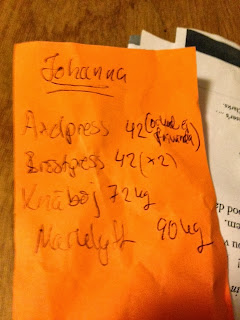 Johanna
Axelpress 42 (också
Bröstpress 42 (x2)
Knäböj 72 kg
Marklyft 90 kg